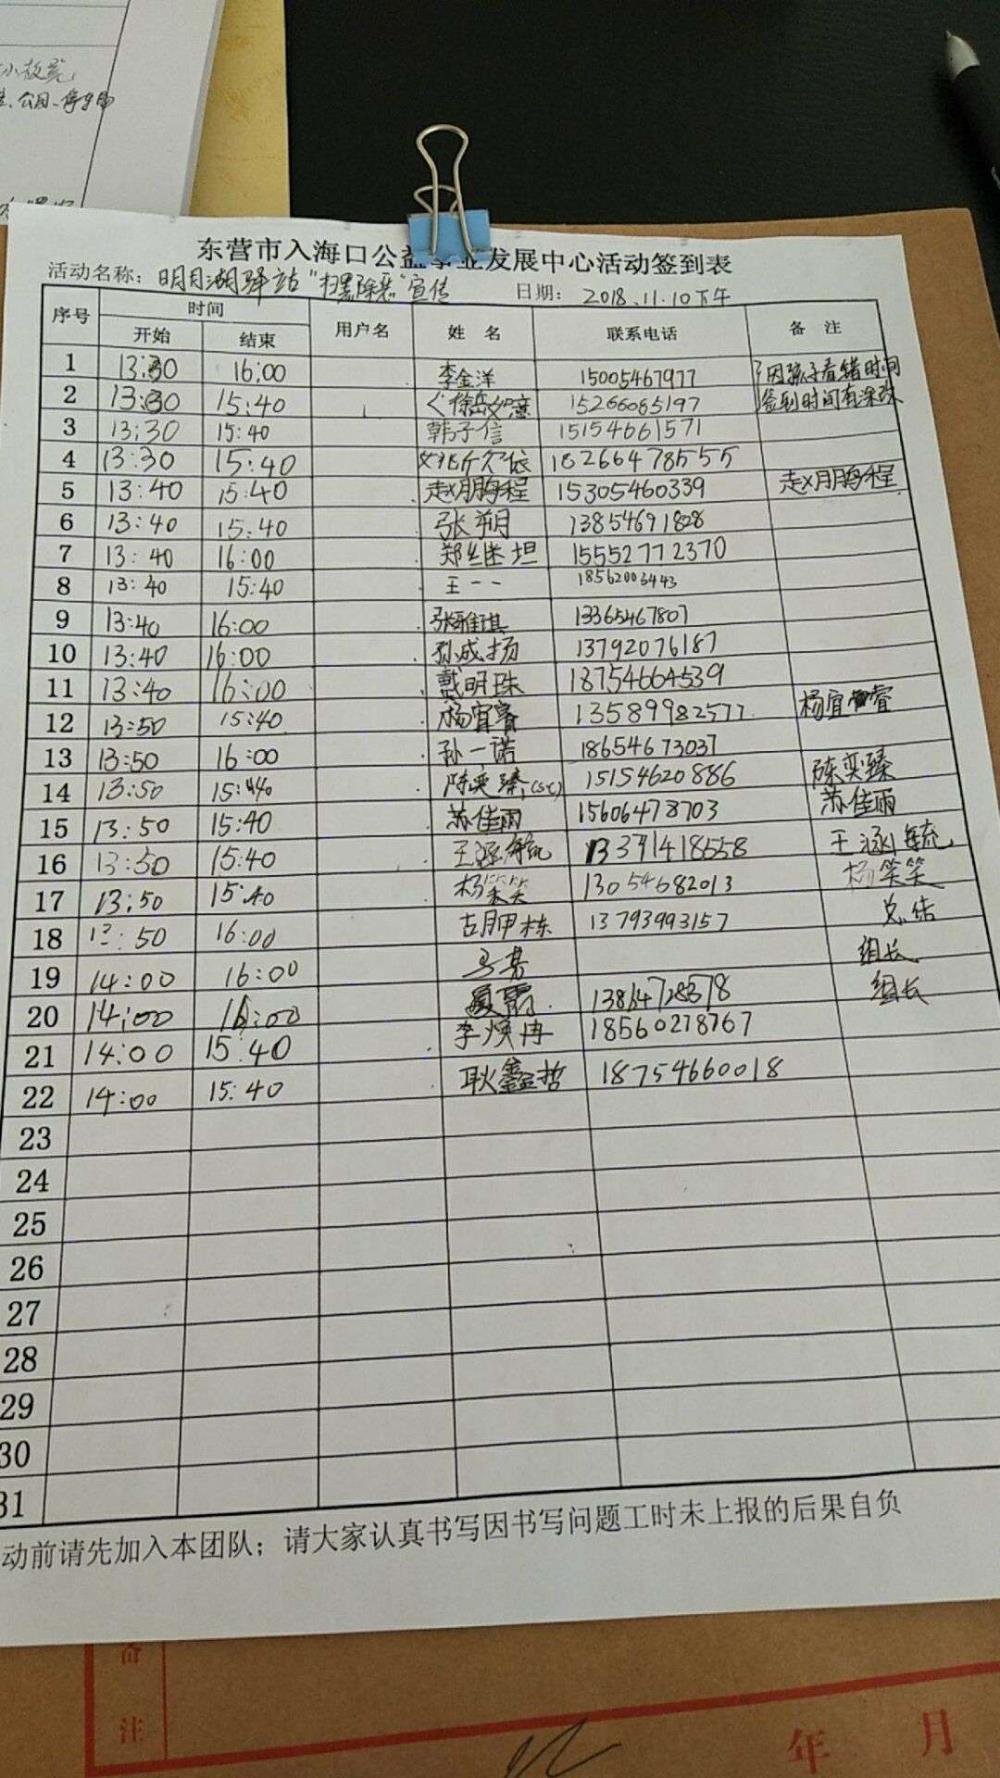 小板凳
公园、停车场
东营市入海口公益事业发展中心活动签到表
活动名称：明月湖驿站"扫黑除恶"宣传 日期：2018.11.10下午
序号 时间 用户名 姓名 联系电话 备注
开始 结束
1 13:30 16:00 李金洋 15005467977 因孩子看错时间
2 13:30 15:40 徐岳如意 15266085197 签到时间有涂改
3 13:30 15:40 韩子信 15154661571
4 13:30 15:40 18266478555
5 13:40 15:40 赵胸程 15305460339 赵胸程
6 13:40 15:40 张朔 13854691828
7 13:40 16:00 郑继坦 15552772370
8 13:40 15:40 王一一 18562003443
9 13:40 16:00 张雅琪 13365467807
10 13:40 16:00 孙成扬 13792076187
11 13:40 16:00 戴明珠 18754664539
12 13:50 15:40 杨宜睿 13589982577 杨宜睿
13 13:50 16:00 孙一诺 18654673037
14 13:50 15:40 陈奕臻 15154620886 陈奕臻
15 13:50 15:40 苏佳雨 15606478703 苏佳雨
16 13:50 15:40 王涵毓 13371418558 王涵毓
17 13:50 15:40 杨笑笑 13054682013 杨笑笑
18 13:50 16:00 胡甲栋 13793993157 总结
19 14:00 16:00 马芳 组长
20 14:00 16:00 夏霞 13864728378 组长
21 14:00 15:40 李焕冉 18560278767
22 14:00 15:40 耿鑫哲 18754660018
23
24
25
26
27
28
29
30
31
动前请先加入本团队；请大家认真书写因书写问题工时未上报的后果自负
备
注
年 月